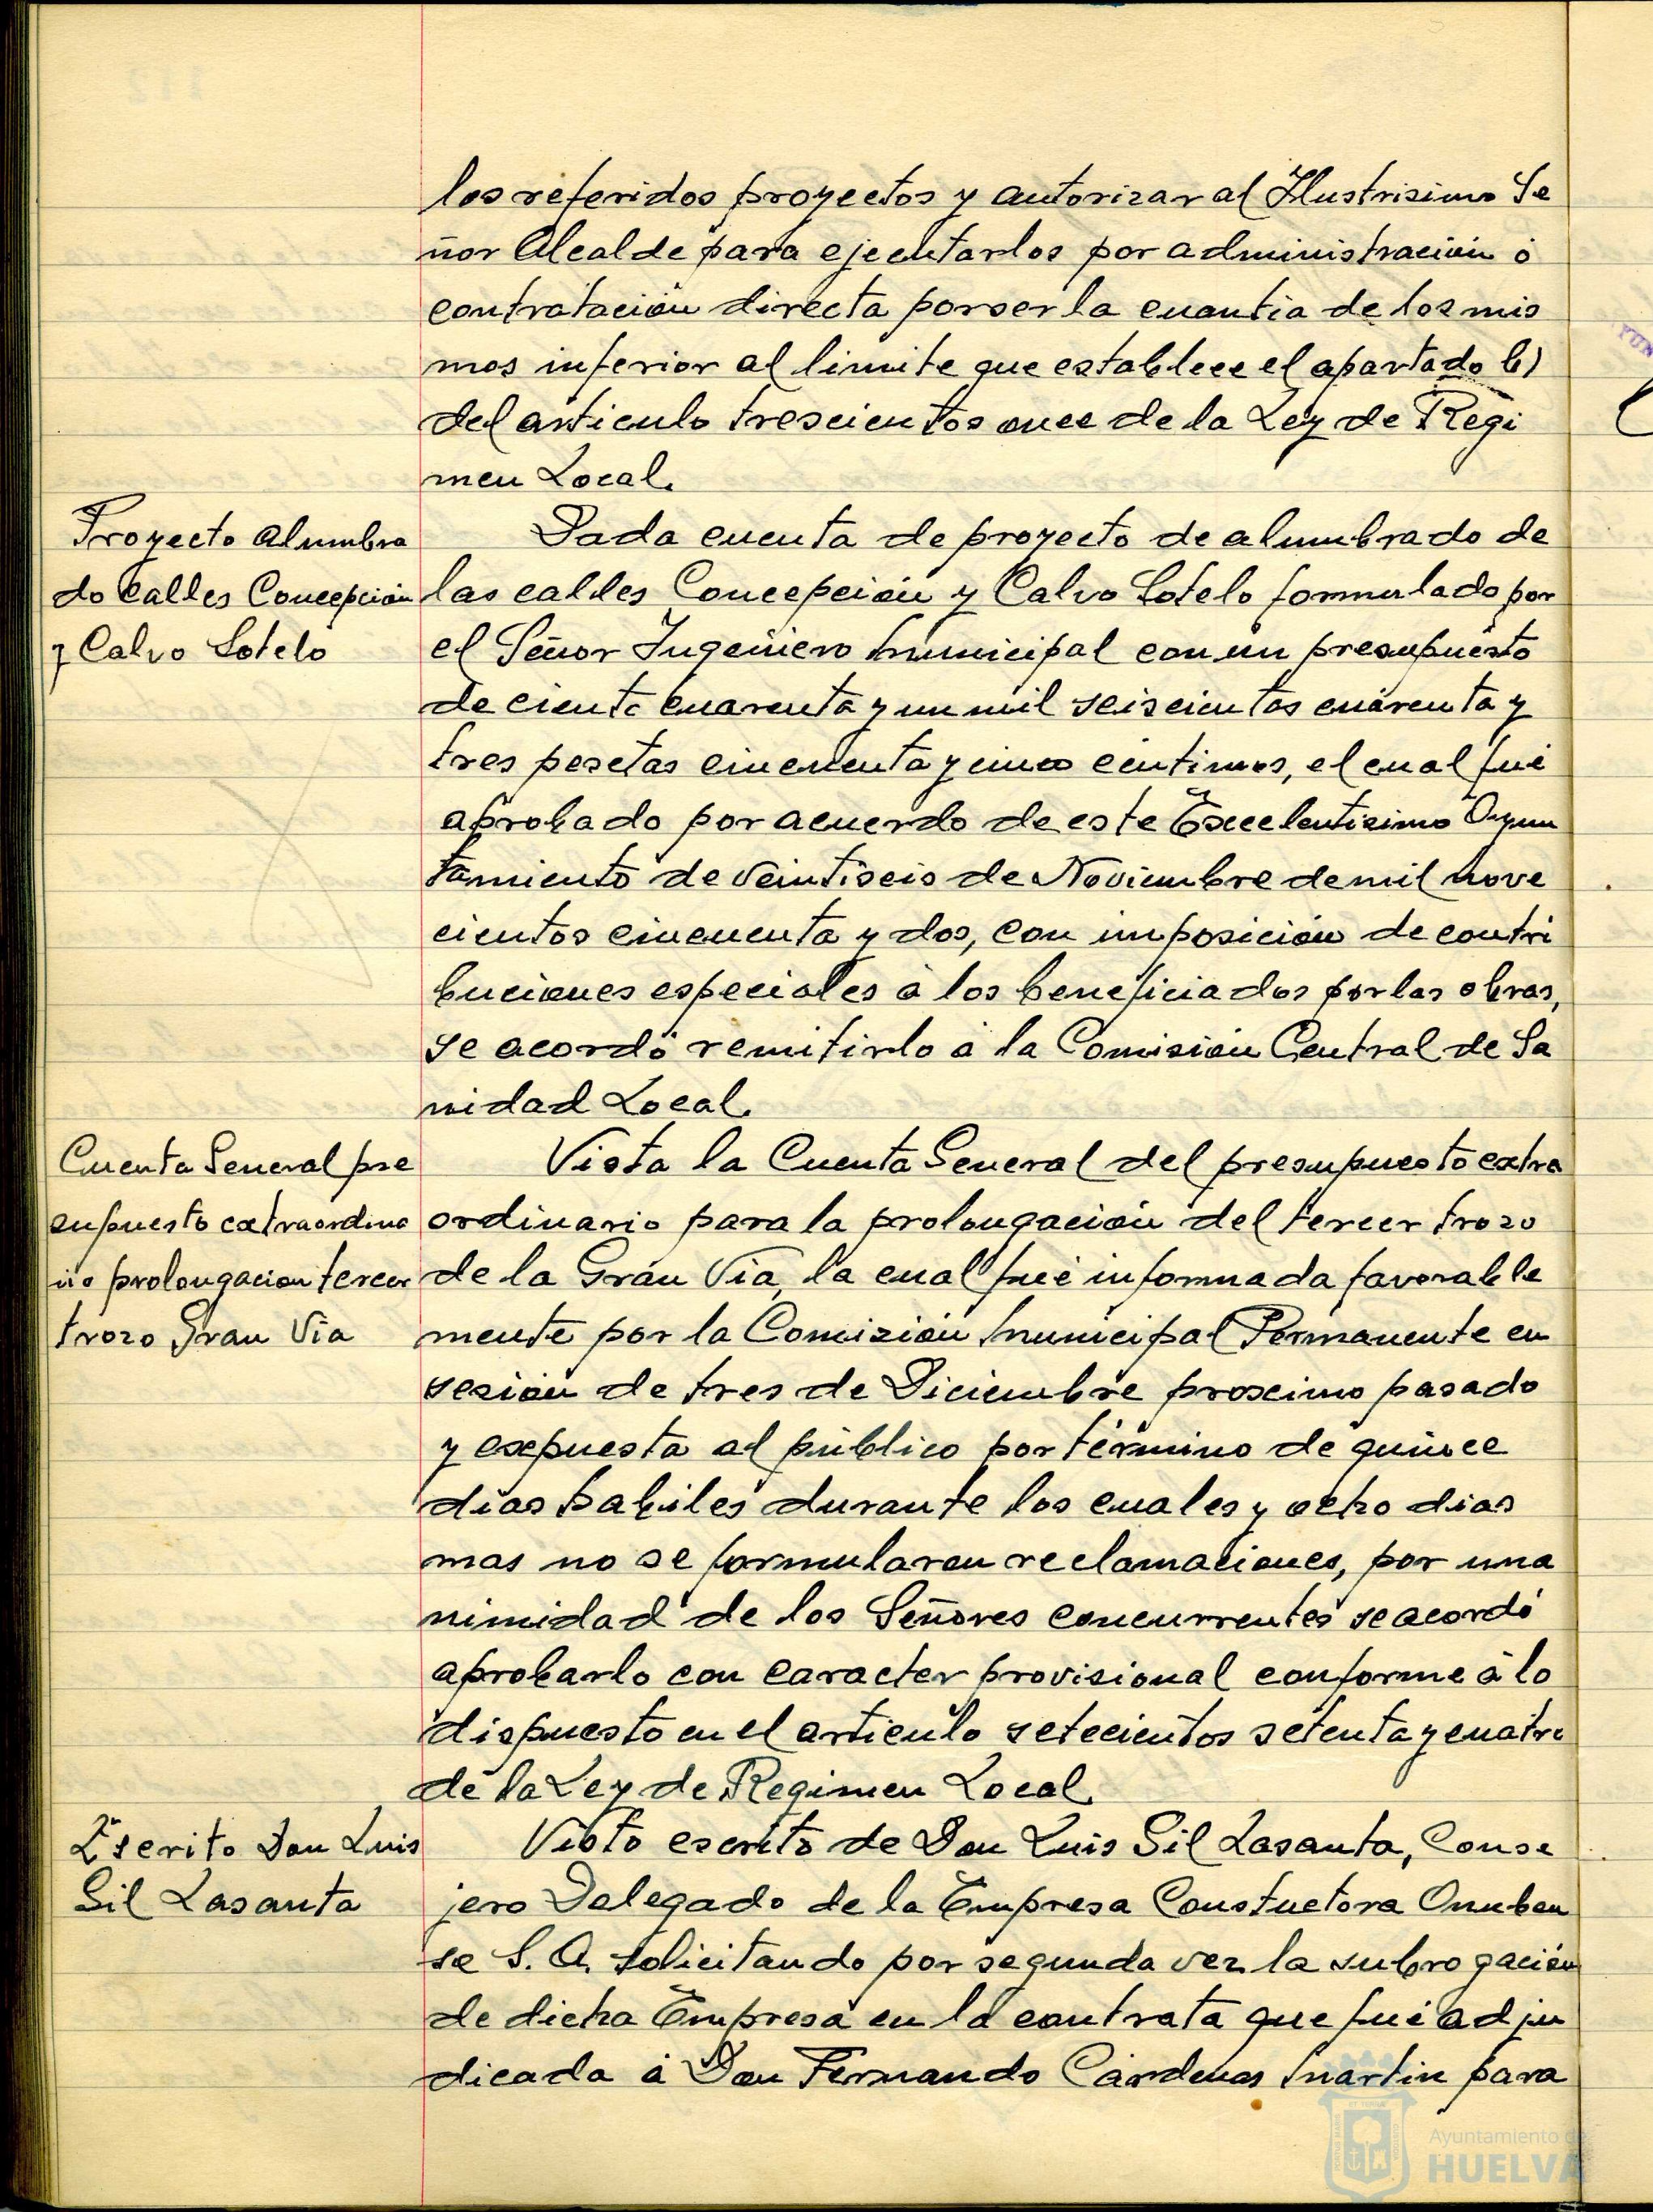 los referidos proyectos y autorizar al Ilustrisimo Se
ñor Alcalde para ejecutarlos por administración ó
contratación directa por ser la cuantia de los mis
mos inferior al limite que establece el apartado b)
del articulo trescientos once de la Ley de Regi
men Local.
Proyecto alumbra
do calles Concepción
y Calvo Sotelo
Dada cuenta de proyecto de alumbrado de
las calles Concepción y Calvo Sotelo formulado por
el Señor Ingeniero Municipal con un presupuesto
de ciento cuarenta y un mil seiscientas cuarenta y
tres pesetas cincuenta y cinco centimos, el cual fué
aprobado por acuerdo de este Excelentisimo Ayun
tamiento de veintiseis de Noviembre de mil nove
cientos cincuenta y dos, con imposición de contri
buciones especiales á los beneficiados por las obras,
se acordó remitirlo á la Comisión Central de Sa
nidad Local.
Cuenta General pre
supuesto extraordina
rio prolongacion tercer
trozo Gran Via
Vista la Cuenta General del presupuesto extra
ordinario para la prolongación del tercer trozo
de la Gran Via, la cual fué informada favorable
mente por la Comisión Municipal Permanente en
sesión de tres de Diciembre proximo pasado
y expuesta al público por término de quince
dias habiles durante los cuales y ocho dias
mas no se formularon reclamaciones, por una
nimidad de los Señores concurrentes se acordó
aprobarlo con caracter provisional conforme á lo
dispuesto en el articulo setecientos setenta y cuatro
de la Ley de Regimen Local
Escrito Don Luis
Gil Lasanta
Visto escrito de Don Luis Gil Lasanta, Conse
jero Delegado de la Empresa Constuctora Onuben
se S. A. solicitando por segunda vez la subrogación
de dicha Empresa en la contrata que fué adju
dicada á Don Fernando Cárdenas Martin para
Ayuntamiento de
HUELVA